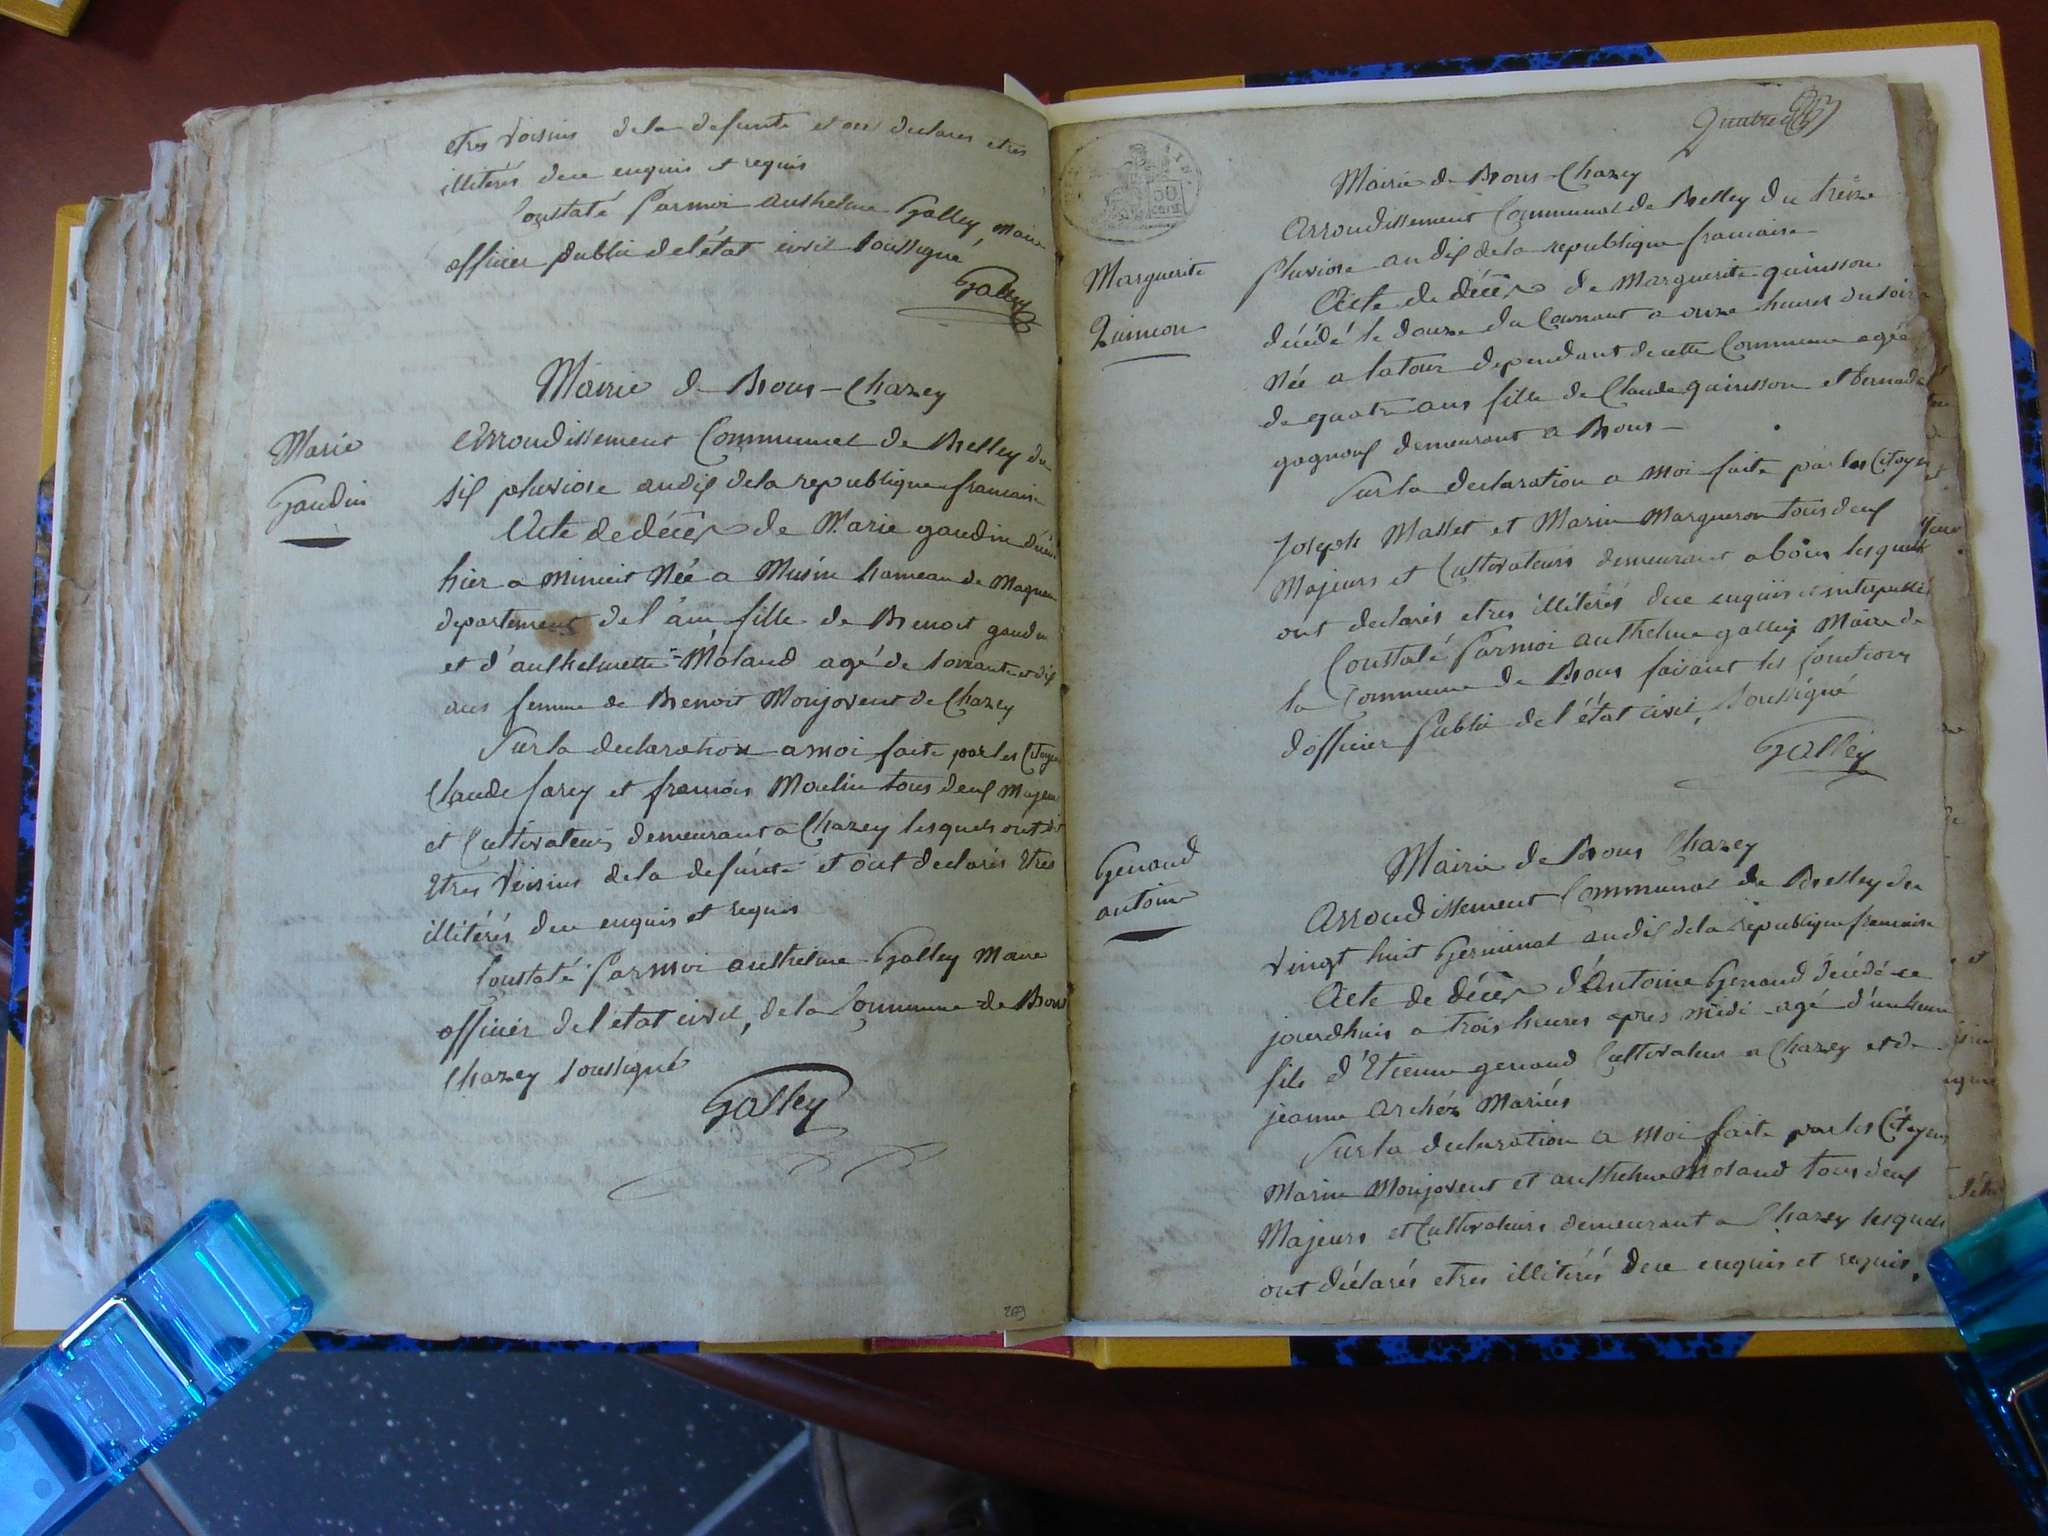 etres voisins de la defunte et ont declares etres
illitérés de ce enquis et requis
Constaté Par moi anthelme Galley maire
officier public de l'état civil soussigné
Galley
Mairie de Brons-Chazey
Marie
Gaudin
Arroudissement Communal de Belley du
six pluviose an dix de la republique francaise
Acte de décès de Marie gaudin
hier a minuit Née a Musin hameau de
departement de l'ain fille de Benoit gaudin
et d'anthelmette Moland agé de soixante et dix
ans femme de Benoit Monjovent de Chazey
Sur la declaration a moi faite par les Citoyens
Claude et francois Moulin tous deux majeurs
et Cultivateurs demeurant a Chazey lesquels ont dit
Etres voisins de la defunte et ont declarés Etres
illitérés de ce enquis et requis
Constaté Par moi anthelme Galley Maire
officier de l'etat civil, de la Commune de Brons
Chazey soussigné
Galley
269
Quatre
50
Mairie de Brons-Chazey
Arroudissement Communal de Belley du treize
pluviose an dix de la republique francaise
Marguerite
Quinson
Acte de décès de Marguerite quinsson
décédé le douze du Courant a onze heures du soir
Née a latour dependant de cette Commune agée
de quatre ans fille de Claude quinsson et
demeurant a Brons
Sur la declaration a moi faite par les Citoyens
Joseph Mallet et Marin Margueron tous deux
Majeurs et Cultivateurs demeurant a lesquels
ont declarés etres illitérés de ce enquis et interpellés
Constaté Par moi anthelme galley Maire de
la Commune de Brons faisant les fonctions
d'officier Public de l'état civil, soussigné
Galley
Mairie de Brons Chazey
Genaud
antoine
Arroudissement Communal de Belley du
vingt huit Germinal an dix de la republique francaise
Acte de décès d'Antoine Genaud décédé ce
jourdhuis a trois heures apres midi agé d'une heure
fils d'Etienne genaud Cultivateur a Chazey et de
jeanne Mariés
Sur la declaration a moi faite par les Citoyens
Marin Monjovent et anthelme Moland tous deux
Majeurs et Cultivateurs demeurant a Chazey lesquels
ont déclarés etres illitérés de ce enquis et requis.